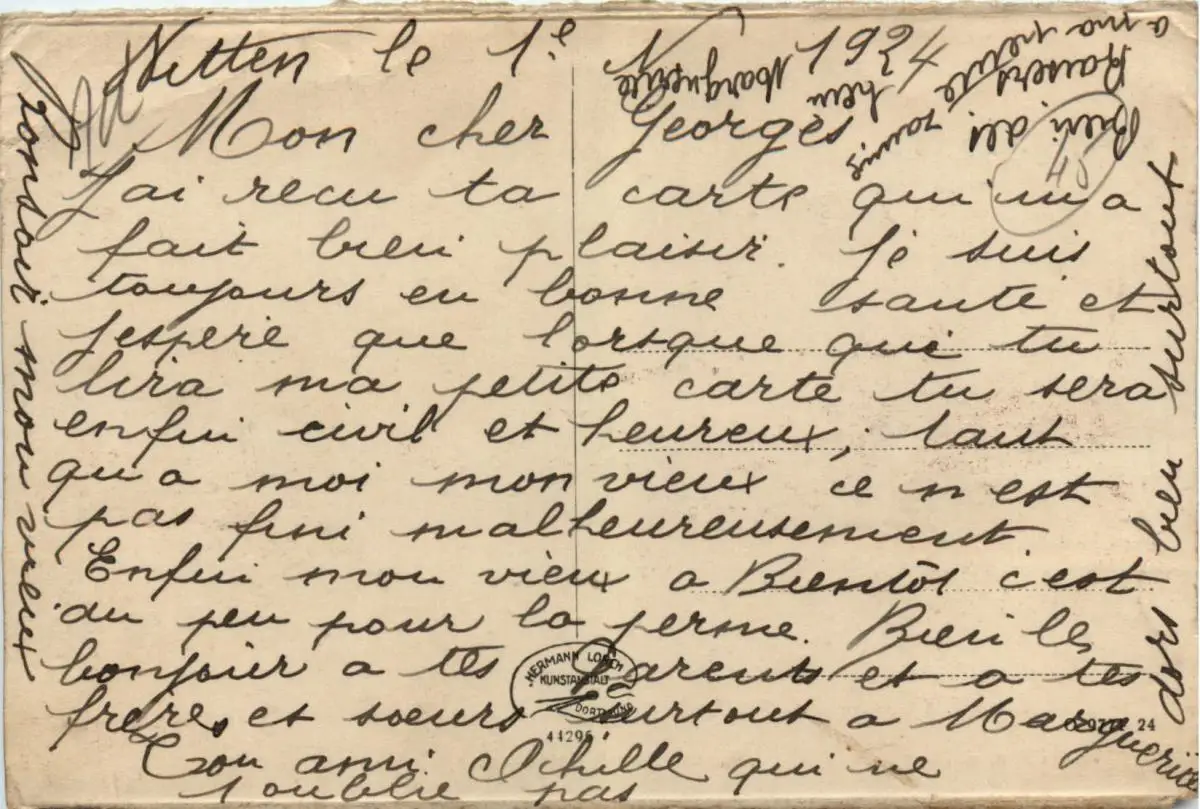 Witten le 1e 1924
Mon cher Georges
J'ai recu ta carte qui m'a
fait bien plaisir. Je suis
toujours en bonne santé et
j'espère que lorsque que tu
lira ma petite carte tu sera
enfin civil et heureux, tant
qu'a moi mon vieux ce n'est
pas fini malheureusement.
Enfin mon vieux a Bientôt c'est
au peu pour la perme. Bien le
bonjour a tes parents et a tes
frères et soeurs surtout a Marguerite
Ton ami Achille qui ne
t'oublie pas
dors bien surtout
mon vieux
Bien des
Baisers
a ma petite
Marguerite
40
HERMANN LORCH
KUNSTANSTALT
DORTMUND
44296
24